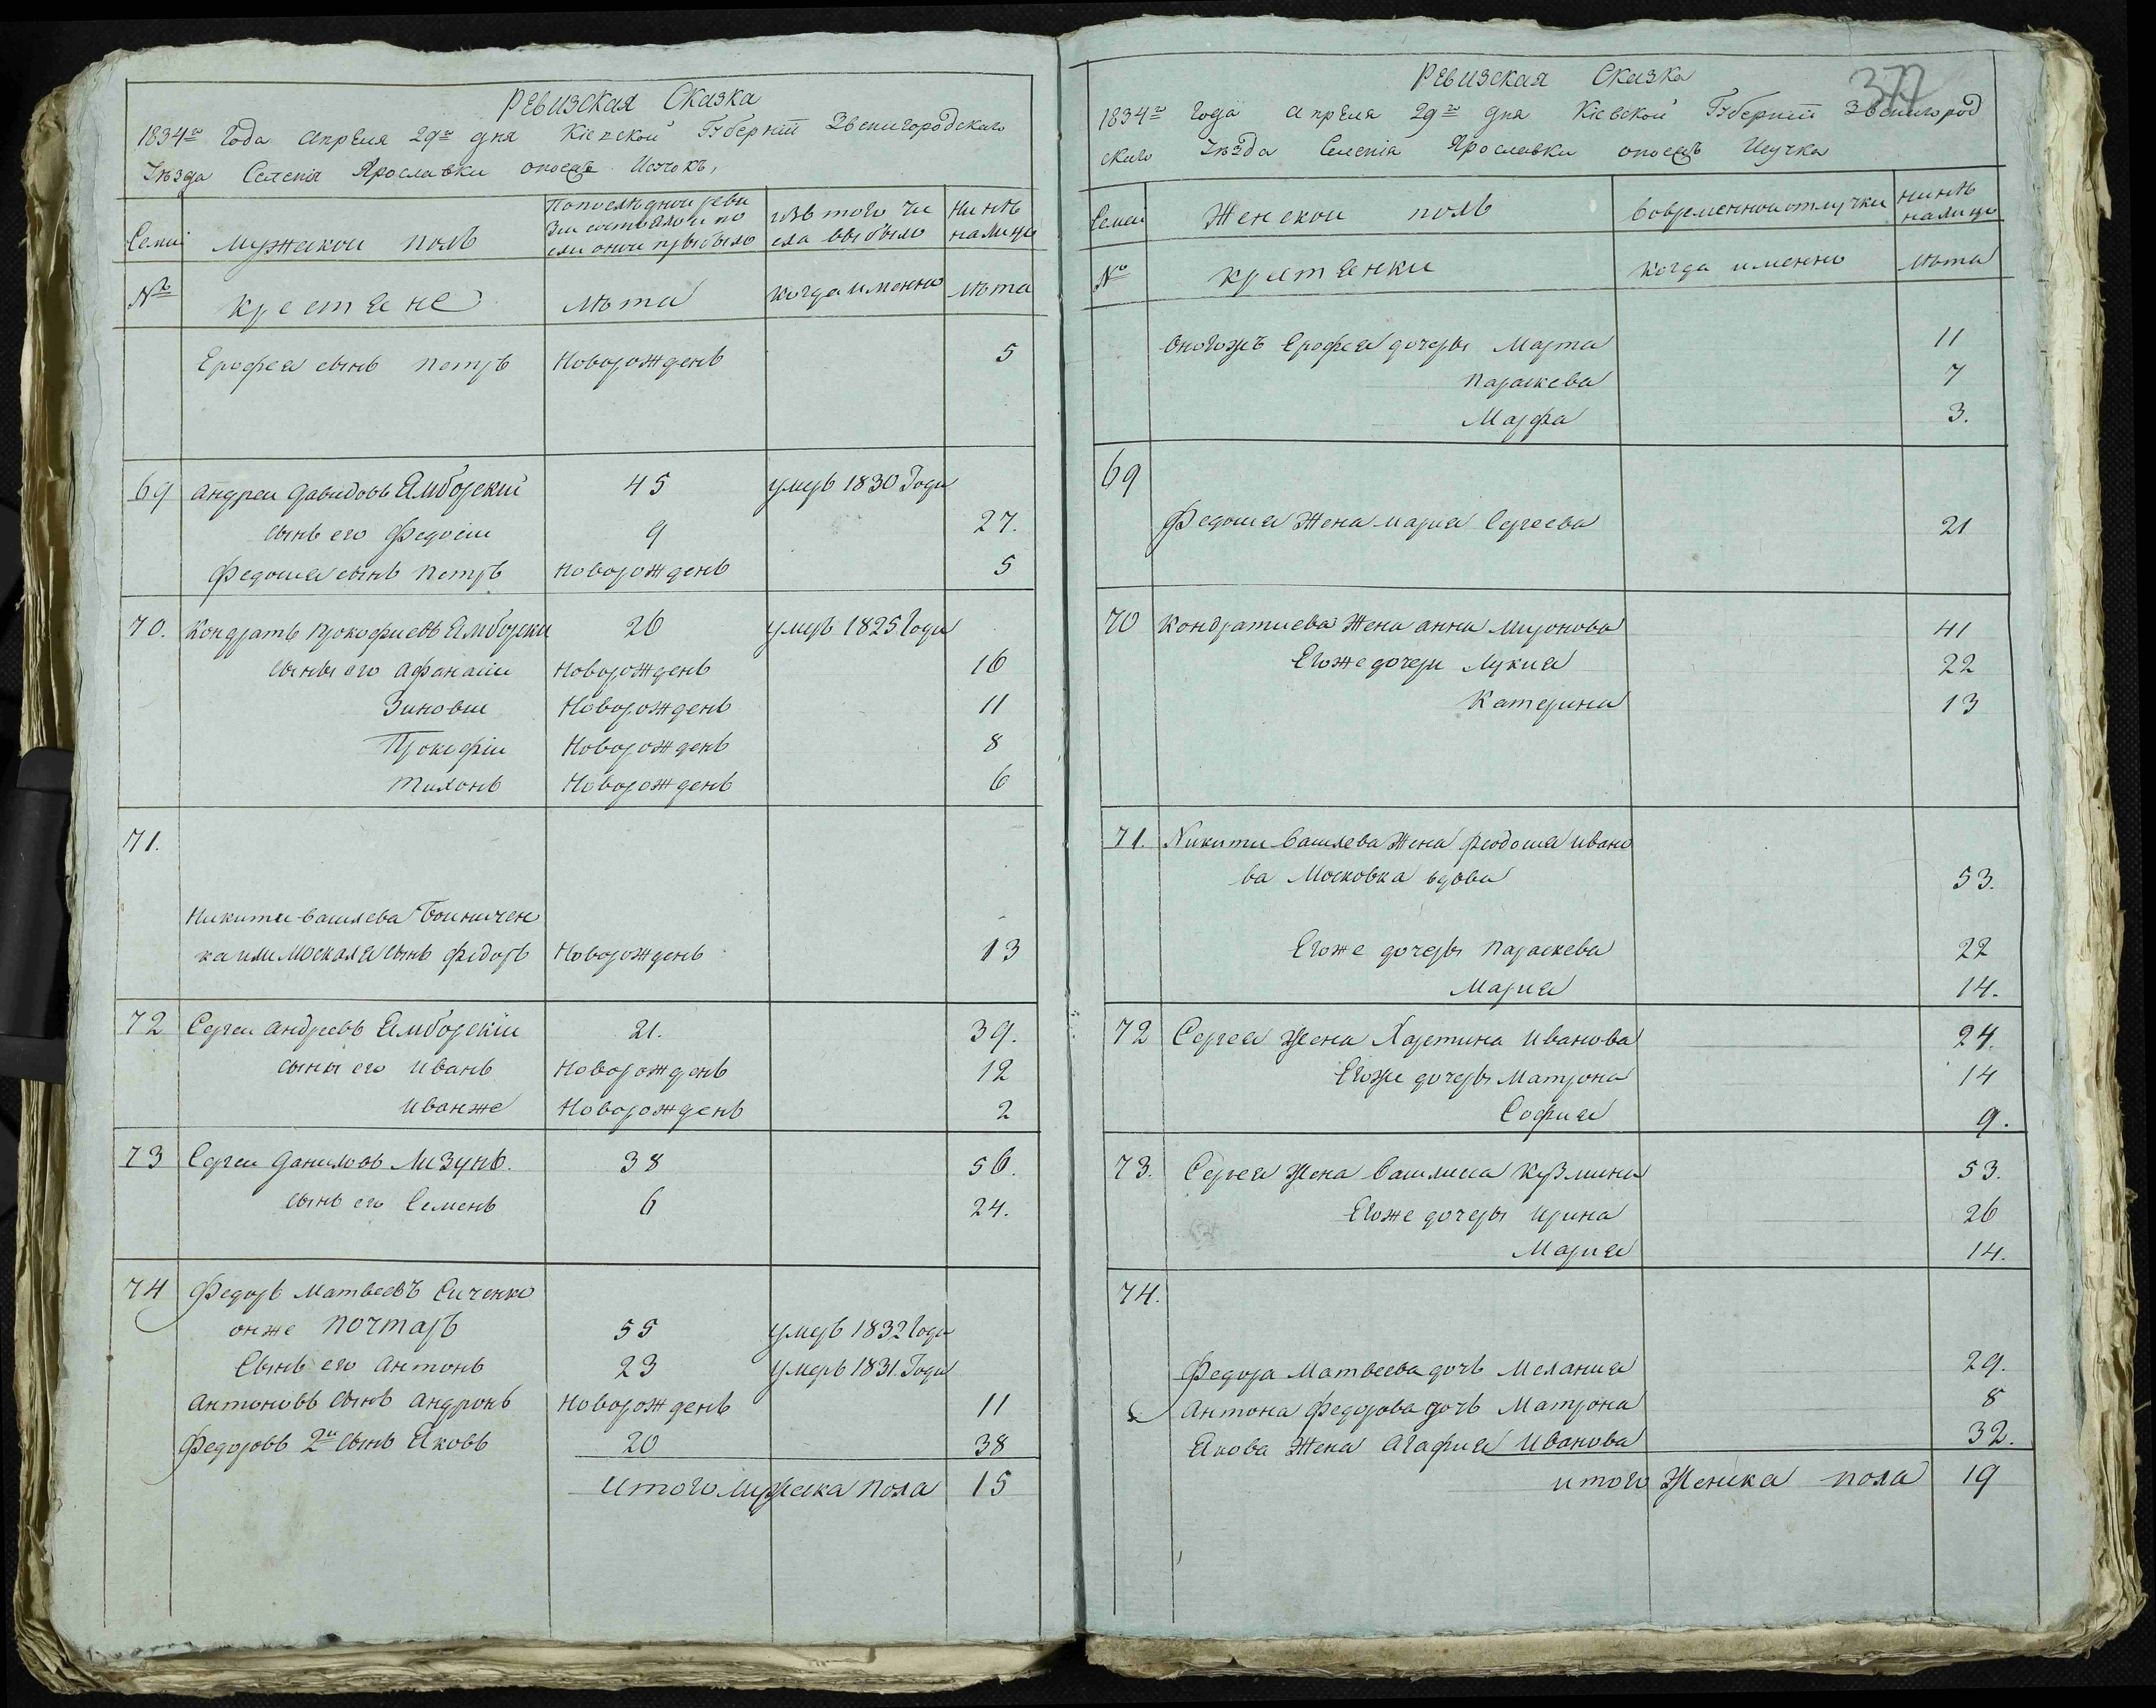 Ревизская Сказка
1834го Года Апреля 29го дня Кіевской Губерніи Звенигородскаго
Уезда Селенія Ярославки
Семи
Мужеской полъ
По последной реви
зіи состояло и по
сли оной прыбыло
изъ того чи
сла выбыло
Нинѣ
налицо
№
крестяне
лѣта
когда именно
лѣта
Ерофея сынъ Петръ Новорожденъ 5
69 Андреи Давидовъ Ямборскій 45 умеръ 1830 Года
сынъ его Федосіи 9 27.
Федосия сынъ Петръ новорожденъ 5
70. Кондратъ Прокофиевъ Ямборски 26 умеръ 1825 Года
сыны его Афанасіи Новорожденъ 16
Зиновіи Новорожденъ 11
Прокофіи Новорожденъ 8
Тихонъ Новорожденъ 6
71.
Никити Василева
ка или Москаля сынъ Федоръ Новорожденъ 13
72 Сергеи Андреевъ Ямборскіи 21. 39.
сыны его Иванъ Новорожденъ 12
Иванже Новорожденъ 2
73 Сергеи Даниловъ Лизунъ. 38 56.
сынъ его Семенъ 6 24.
74 Федоръ Матвеевъ Сиченко
онже Почтаръ 55 умеръ 1832 Года
Сынъ его Антонъ 23 умеръ 1831. Года
Антоновъ сынъ Андронъ Новорожденъ 11
Федоровъ 2й сынъ Яковъ 20 38
Итого мужеска пола 15
377
Ревизская Сказка
1834го Года Апреля 29го дня Кіевской Губерніи Звенигород
скаго Уезда Селенія Ярославки
Семи
Женской полъ
Вовременной отлучки
нинѣ
налицо
№
крестянки
когда именно
лѣта
Оногожъ Ерофея дочеры Марта 11
Параскева 7
Марфа 3.
69
Федосия Жена Мария Сергеева 21
70 Кондратиева Жена Анна Миронова 41
Егоже дочери Лукия 22
Катерина 13
71. Никити Василева Жена Феодосия Ивано
ва Московка вдова 53.
Егоже дочеры Параскева 22
Мария 14.
72 Сергея Жена Харитина Иванова 24.
Егоже дочеры Матрона 14
София 9.
73. Сергея Жена Василиса Кузмина 53.
Егоже дочеры Ирина 26
Мария 14.
74.
Федора Матвеева дочъ Мелания 29.
Антона Федорова дочъ Матрона 8
Якова Жена Агафия Иванова 32.
итого Женска пола 19